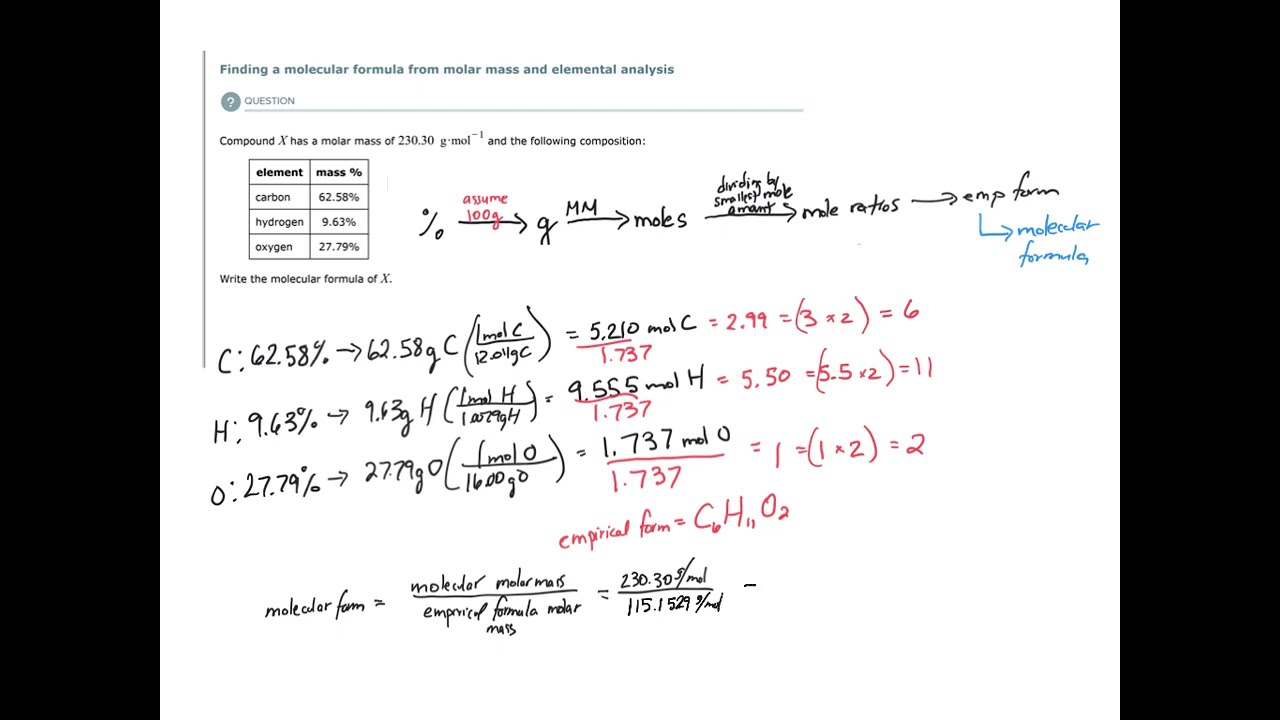 Finding a molecular formula from molar mass and elemental analysis
? QUESTION
Compound X has a molar mass of 230.30 g·mol⁻¹ and the following composition:
element mass %
carbon 62.58%
hydrogen 9.63%
oxygen 27.79%
% assume 100g → g MM → moles dividing by smallest mole amount → mole ratios → emp form
↳ molecular formula
Write the molecular formula of X.
C: 62.58% → 62.58g C (1mol C / 12.011gC) = 5.210 mol C / 1.737 = 2.99 = (3 × 2) = 6
H: 9.63% → 9.63g H (1mol H / 1.0079gH) = 9.555 mol H / 1.737 = 5.50 = (5.5 × 2) = 11
O: 27.79% → 27.79g O (1mol O / 16.00gO) = 1.737 mol O / 1.737 = 1 = (1 × 2) = 2
empirical form = C₆H₁₁O₂
molecular form = molecular molar mass / empirical formula molar mass = 230.30 g/mol / 115.1529 g/mol =